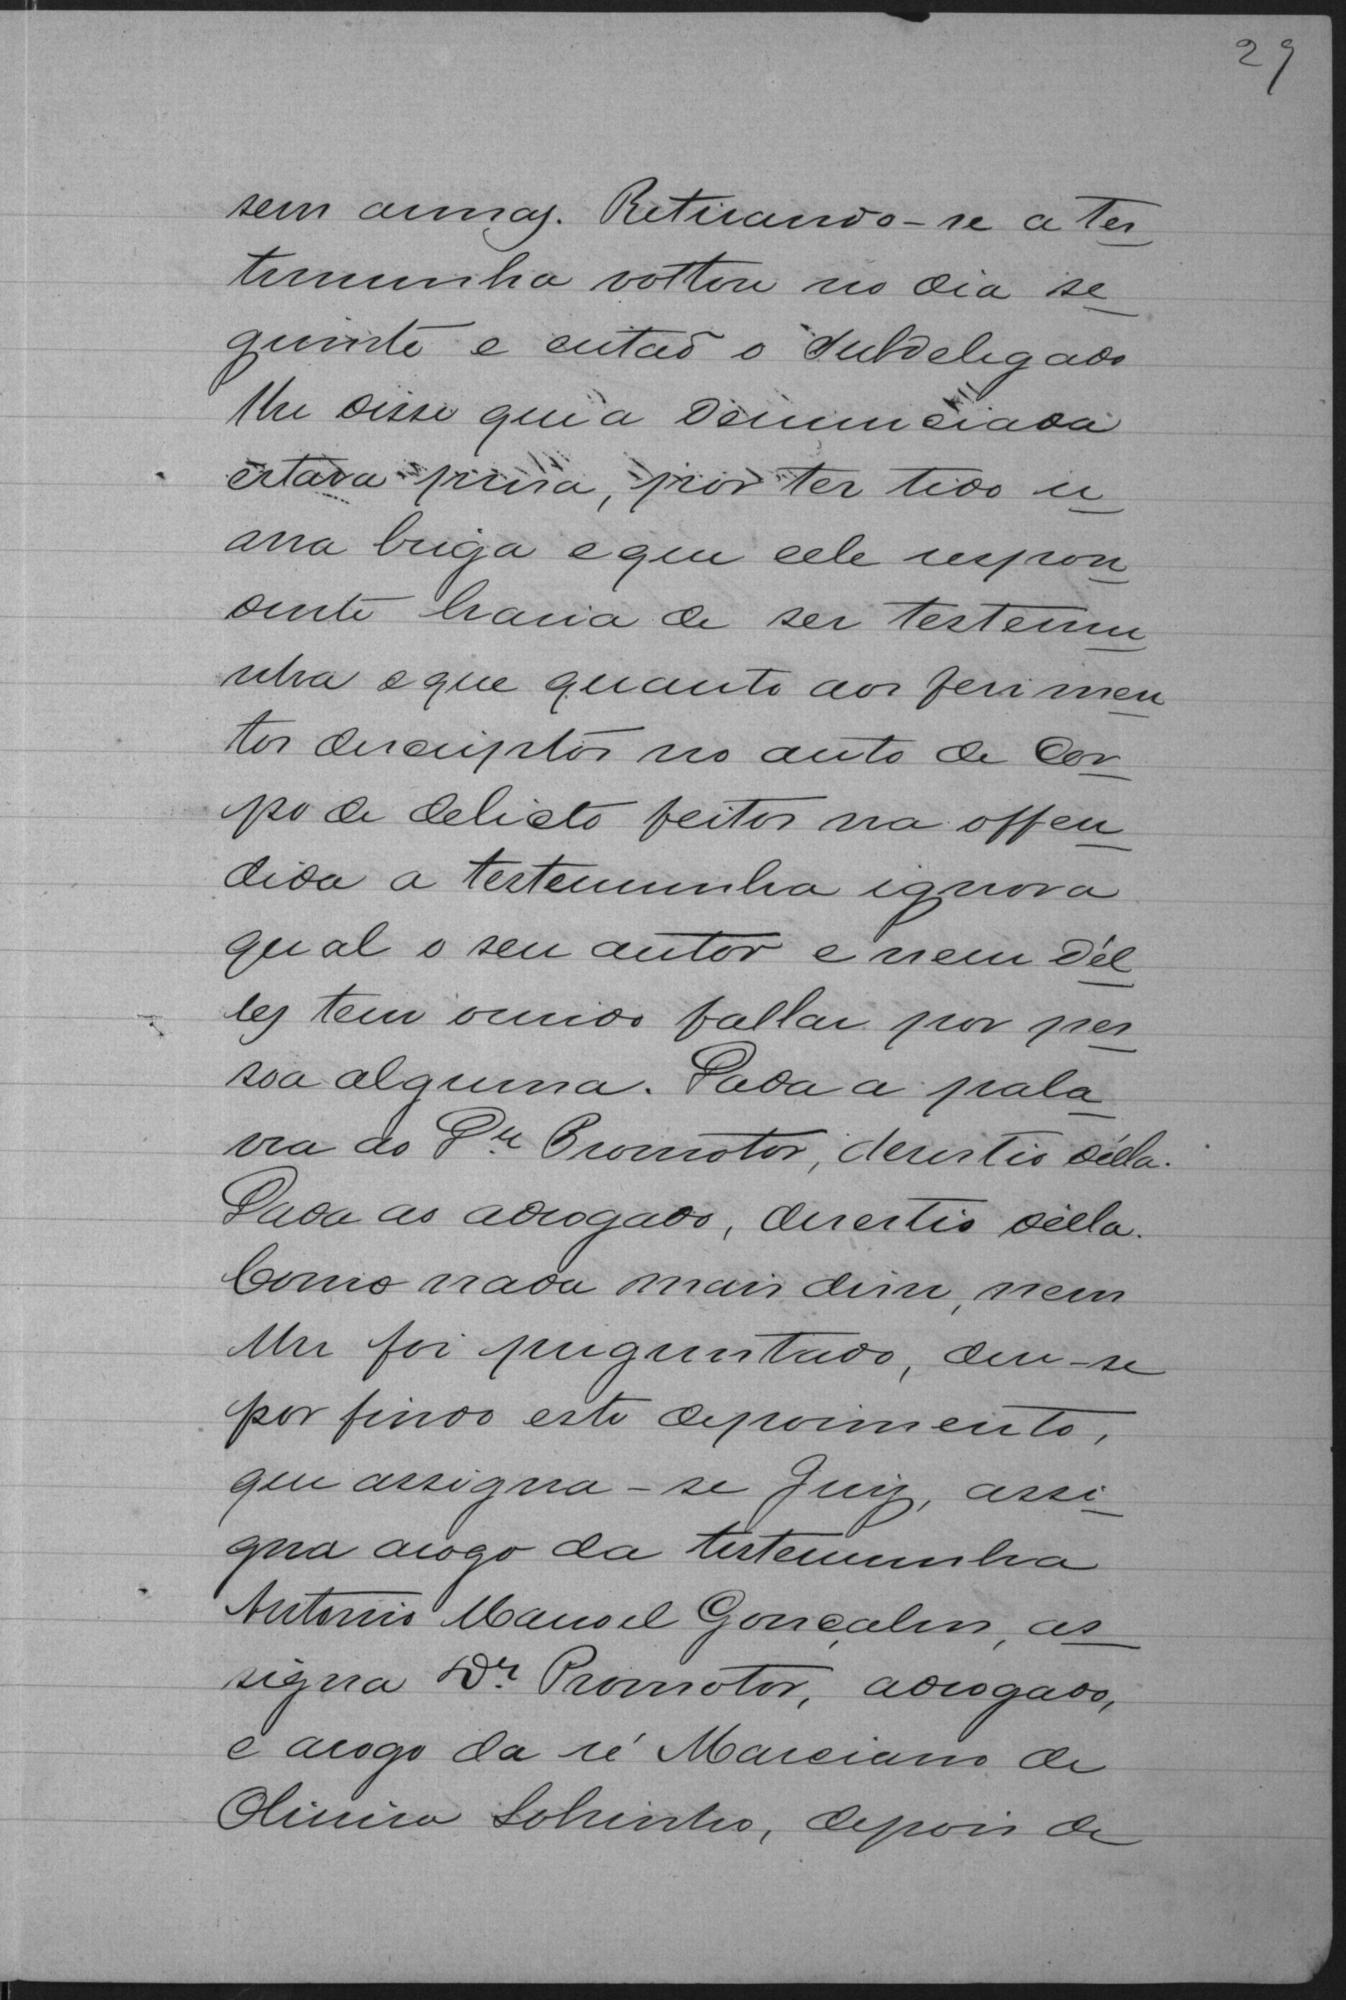 29
sem armas. Retirando-se a tes
temunha voltou no dia se
guinte e então o Subdelegado
lhe disse que a denunciada
estava presa, por ter tido u
ma briga e que elle respon
dente havia de ser testemu
nha e que quanto aos ferimen
tos descriptos no auto de cor
po de delicto feitos na offen
dida a testemunha ignora
qual o seu autor e nem d'el
les tem ouvido fallar por pes
soa alguma. Dada a pala
vra ao Dr Promotor, desestio d'ella.
Dada ao advogado, desestio d'ella.
Como nada mais disse, nem
lhe foi preguntado, deu-se
por findo este depoimento,
que assigna-se Juiz, assi
gna arogo da testemunha
Antonio Manoel Gonçalves, as
signa Dr. Promotor, advogado,
e arogo da ré Marciano de
Oliveira Sobrinho, depois de